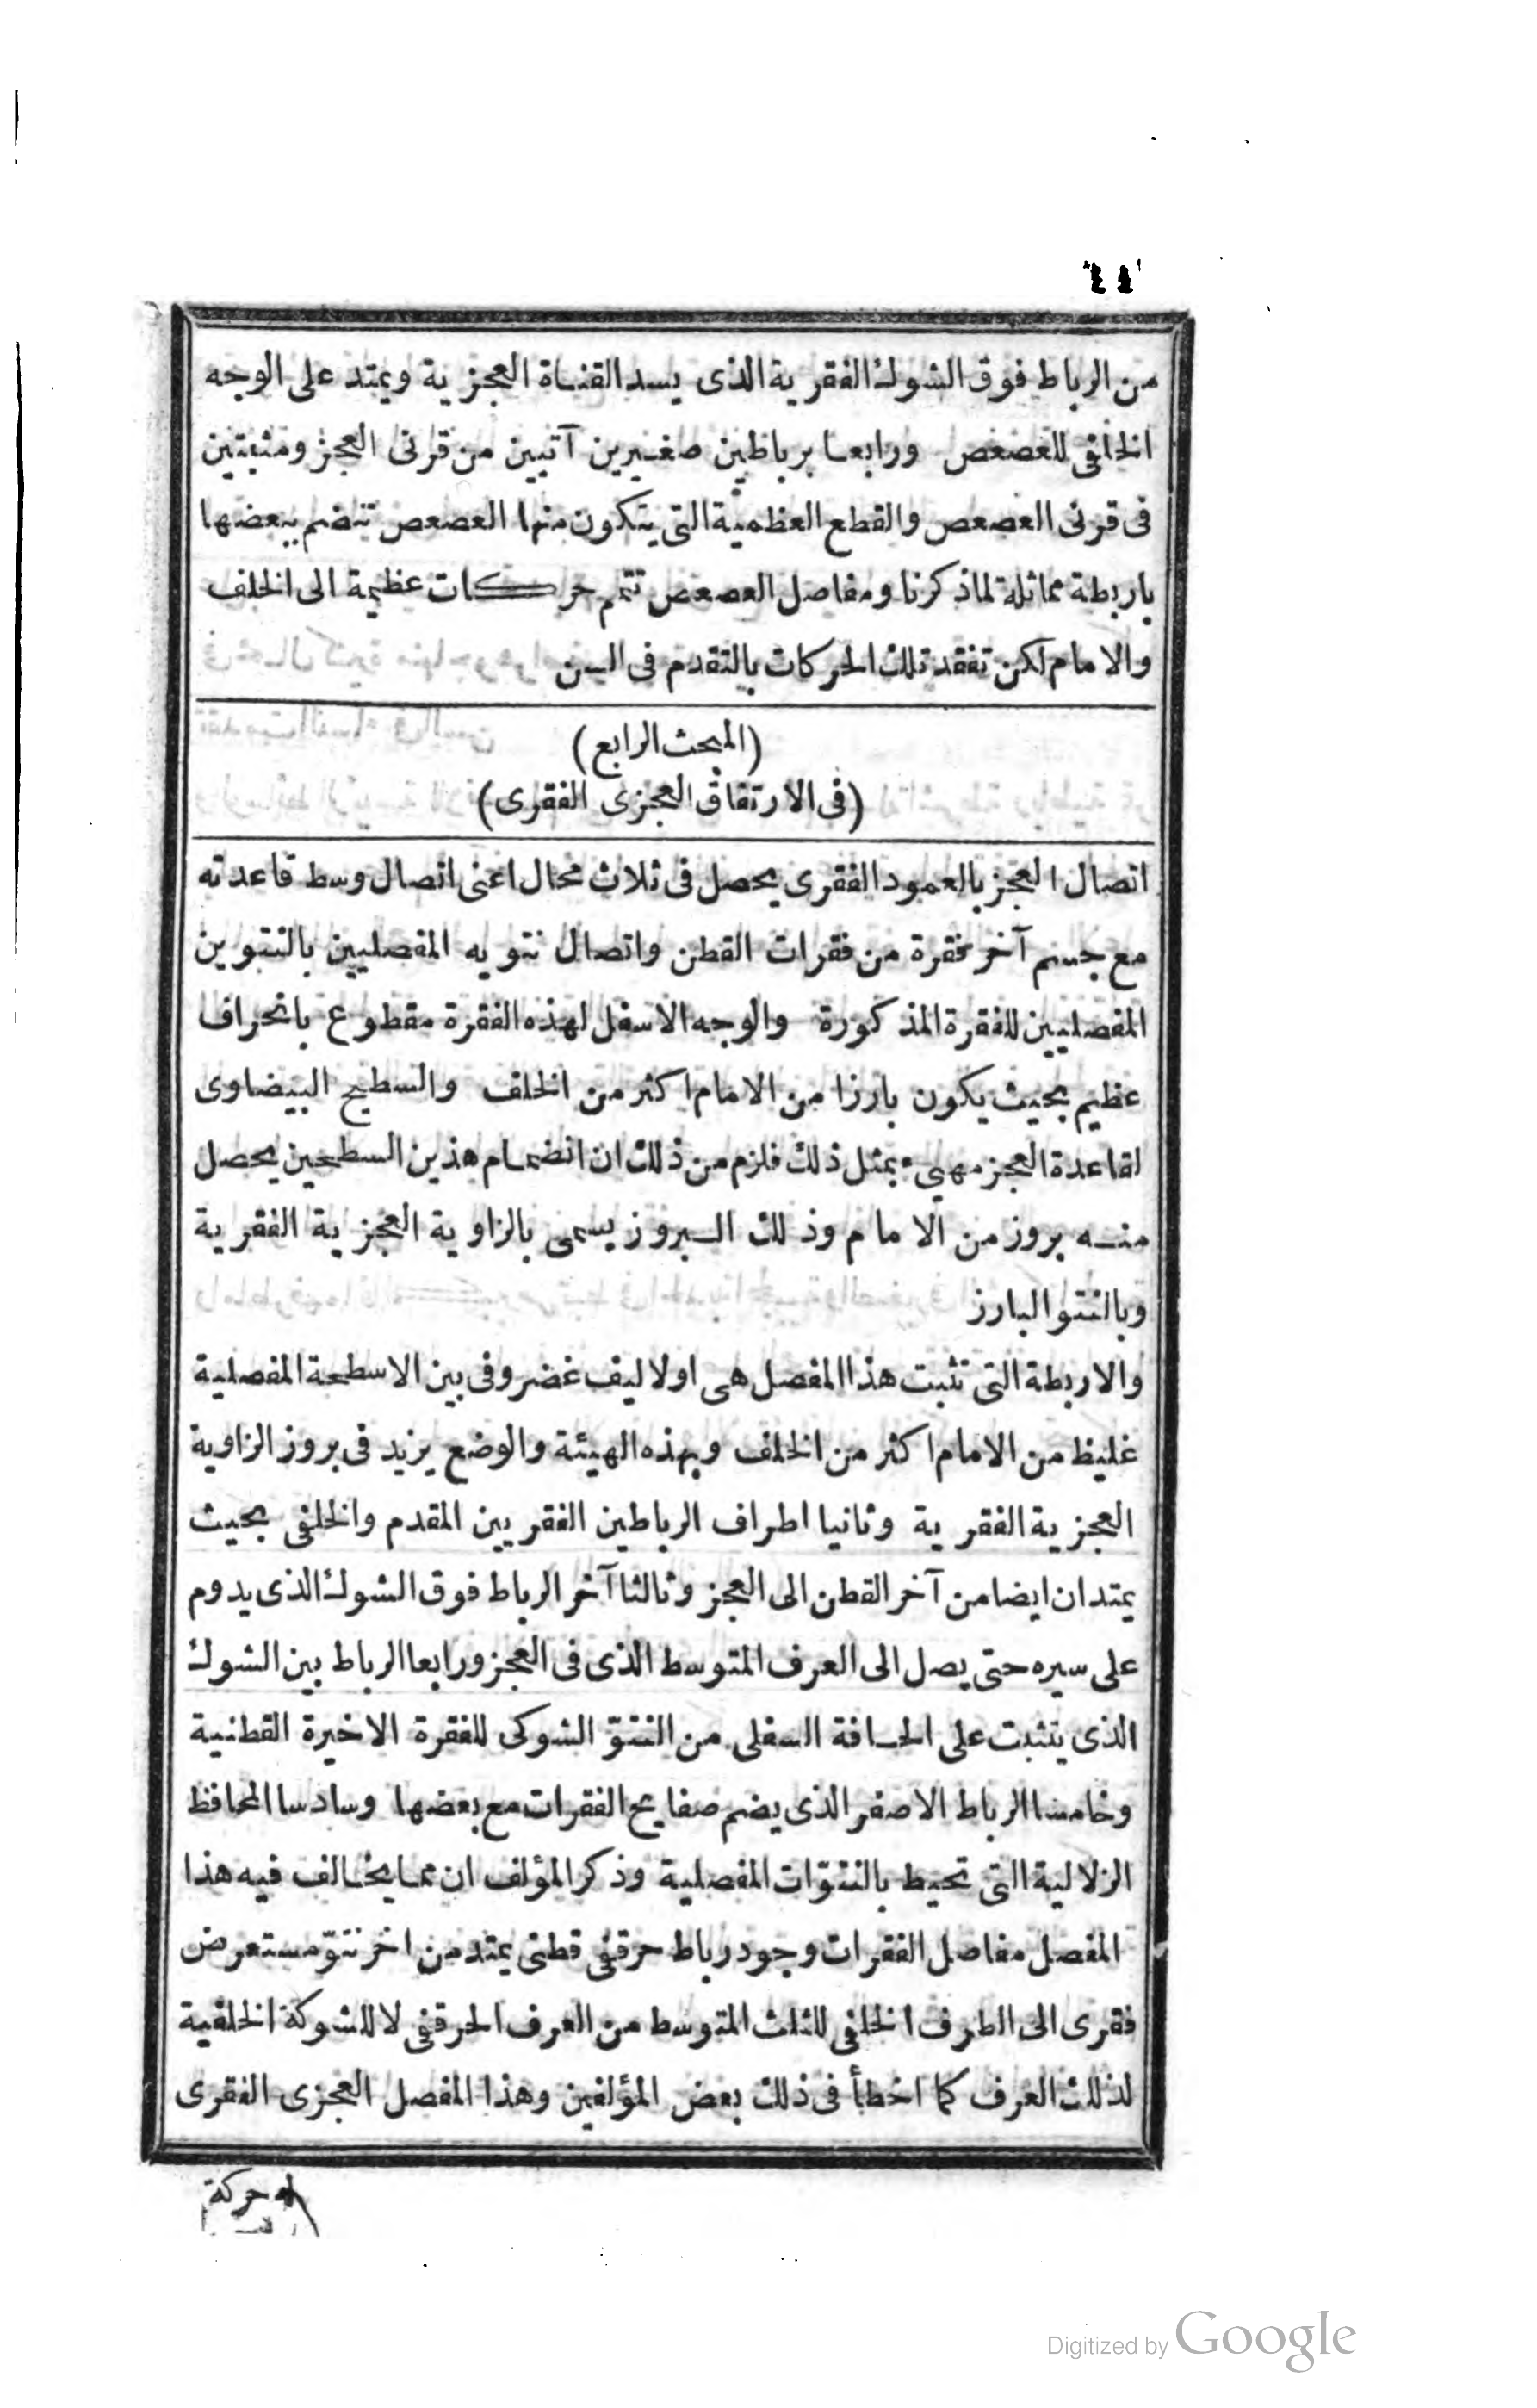 من الرباط فوق الشوك الفقرية الذى يسد القناة العجزية ويمتد على الوجه
الخلفى للعصعص ورابعا برباطين صغيرين آتيين من قرنى العجز ومثبتين
فى قرنى العصعص والقطع العظمية التى يتكون منها العصعص تنضم ببعضها
باربطة مماثلة لماذكرنا ومفاصل العصعص تتمم حركات عظيمة الى الخلف
والامام لكن تفقد تلك الحركات بالتقدم فى السن
(المبحث الرابع)
(فى الارتفاق العجزى الفقرى)
اتصال العجز بالعمود الفقرى يحصل فى ثلاث محال اعنى اتصال وسط قاعدته
مع جسم آخر فقرة من فقرات القطن واتصال نتويه المفصليين بالنتوين
المفصليين للفقرة المذكورة والوجه الاسفل لهذه الفقرة مقطوع بانحراف
عظيم بحيث يكون بارزا من الامام اكثر من الخلف والسطح البيضاوى
لقاعدة العجز مهيء بمثل ذلك فلزم من ذلك ان انضمام هذين السطحين يحصل
منه بروز من الامام وذلك البروز يسمى بالزاوية العجزية الفقرية
وبالنتو البارز
والاربطة التى تثبت هذا المفصل هى اولا ليف غضروفى بين الاسطحة المفصلية
غليظ من الامام اكثر من الخلف وبهذه الهيئة والوضع يزيد فى بروز الزاوية
العجزية الفقرية وثانيا اطراف الرباطين الفقريين المقدم والخلفى بحيث
يمتدان ايضا من آخر القطن الى العجز وثالثا آخر الرباط فوق الشوك الذى يدوم
على سيره حتى يصل الى العرف المتوسط الذى فى العجز ورابعا الرباط بين الشوك
الذى يتثبت على الحافة السفلى من النتوّ الشوكى للفقرة الاخيرة القطنية
وخامسا الرباط الاصفر الذى يضم صفايح الفقرات مع بعضها وسادسا المحافظ
الزلالية التى تحيط بالنتوّات المفصلية وذكر المؤلف ان مما يخالف فيه هذا
المفصل مفاصل الفقرات وجود رباط حرقفى قطنى يمتد من اخر نتوّ مستعرض
فقرى الى الطرف الخلفى للثلث المتوسط من العرف الحرقفى لا للشوكة الخلفية
لذلك العرف كما اخطأ فى ذلك بعض المؤلفين وهذا المفصل العجزى الفقرى
له حركة
Digitized by Google